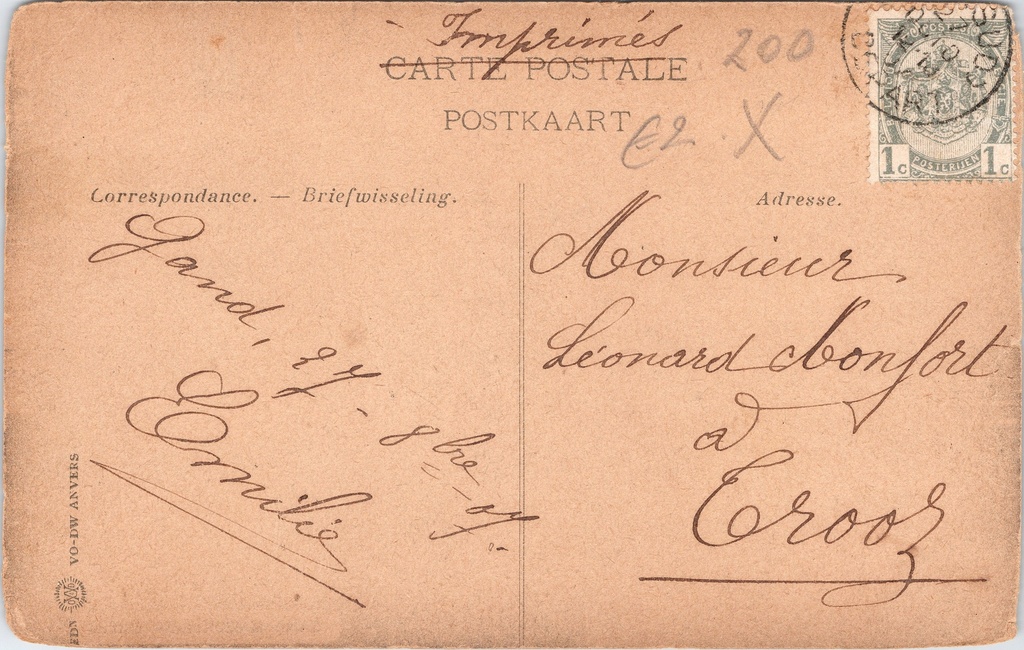 Imprimés
CARTE POSTALE
POSTKAART
200
€2 X
POSTES
1c POSTERIJEN 1c
Correspondance. — Briefwisseling.
Adresse.
Gand, 27 - 8bre - 07.
Emilie
Monsieur
Léonard Monfort
à
Trooz
EDN VO-DW ANVERS